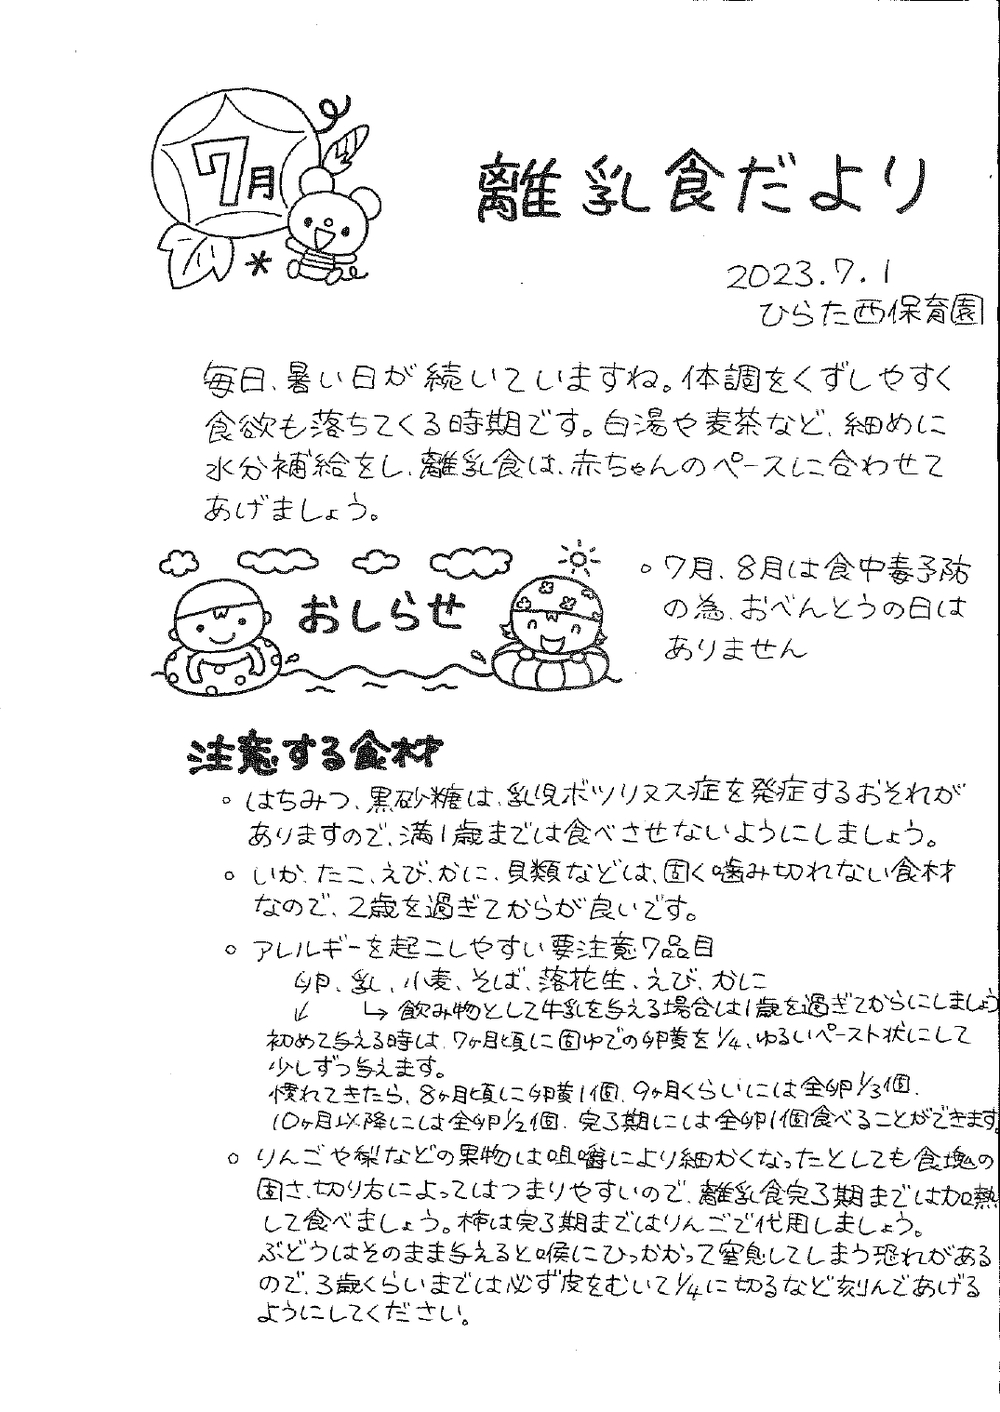 7月
離乳食だより
2023.7.1
ひらた西保育園
毎日、暑い日が続いていますね。体調をくずしやすく
食欲も落ちてくる時期です。白湯や麦茶など、細めに
水分補給をし、離乳食は、赤ちゃんのペースに合わせて
あげましょう。
おしらせ
○ 7月、8月は食中毒予防
の為、おべんとうの日は
ありません
注意する食材
○ はちみつ、黒砂糖は、乳児ボツリヌス症を発症するおそれが
ありますので、満1歳までは食べさせないようにしましょう。
○ いか、たこ、えび、かに、貝類などは、固く噛み切れない食材
なので、2歳を過ぎてからが良いです。
○ アレルギーを起こしやすい要注意7品目
卵、乳、小麦、そば、落花生、えび、かに
↓ ↳ 飲み物として牛乳を与える場合は1歳を過ぎてからにしましょう
初めて与える時は、7ヶ月頃に固ゆでの卵黄を1/4、ゆるいペースト状にして
少しずつ与えます。
慣れてきたら、8ヶ月頃に卵黄1個、9ヶ月くらいには全卵1/3個、
10ヶ月以降には全卵1/2個、完了期には全卵1個食べることができます。
○ りんごや梨などの果物は咀嚼により細かくなったとしても食塊の
固さ、切り方によってはつまりやすいので、離乳食完了期までは加熱
して食べましょう。柿は完了期まではりんごで代用しましょう。
ぶどうはそのまま与えると喉にひっかかって窒息してしまう恐れがある
ので、3歳くらいまでは必ず皮をむいて1/4に切るなど刻んであげる
ようにしてください。